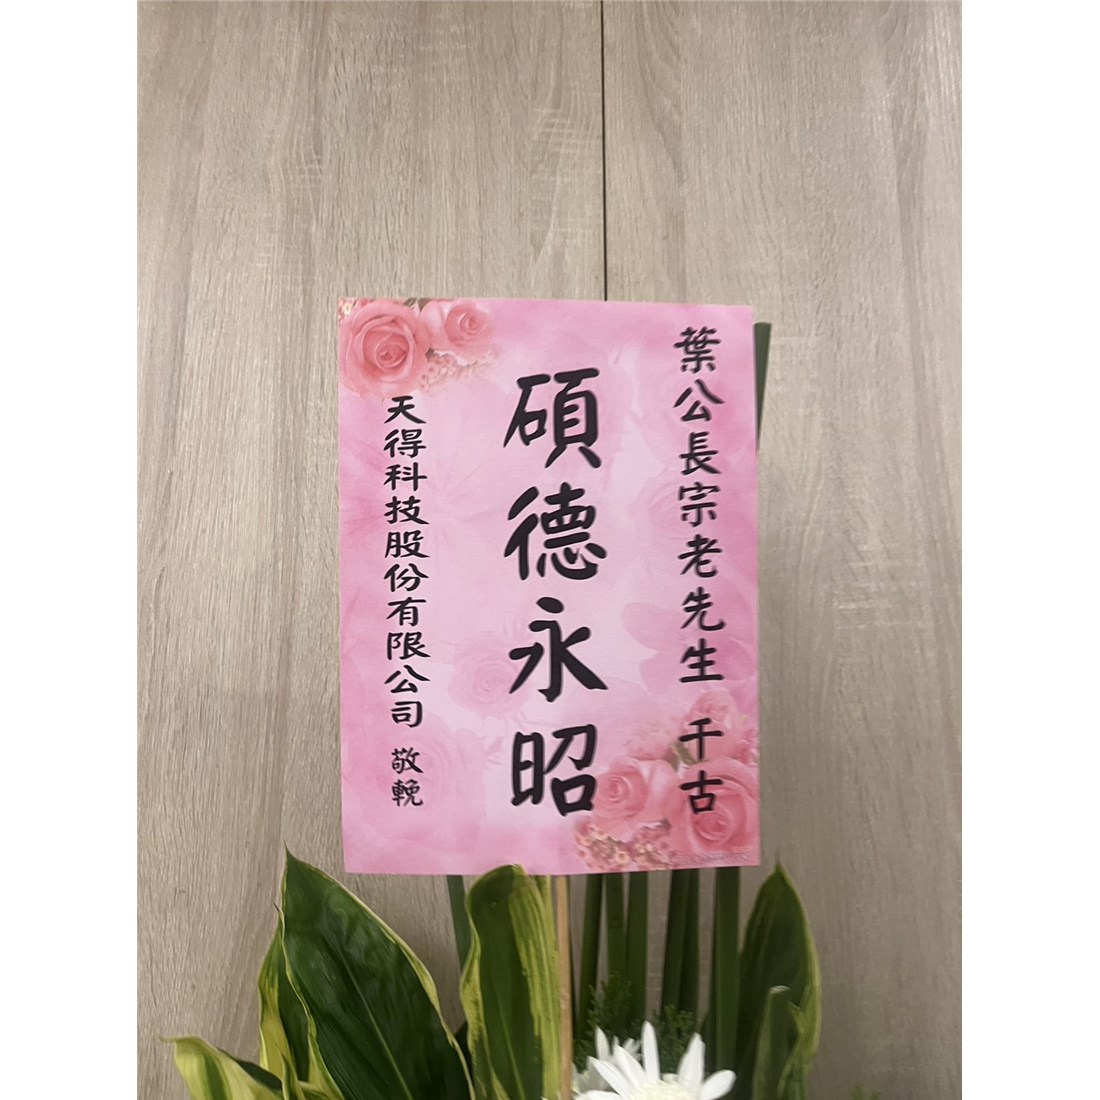 葉公長宗老先生 千古
碩德永昭
天得科技股份有限公司 敬輓